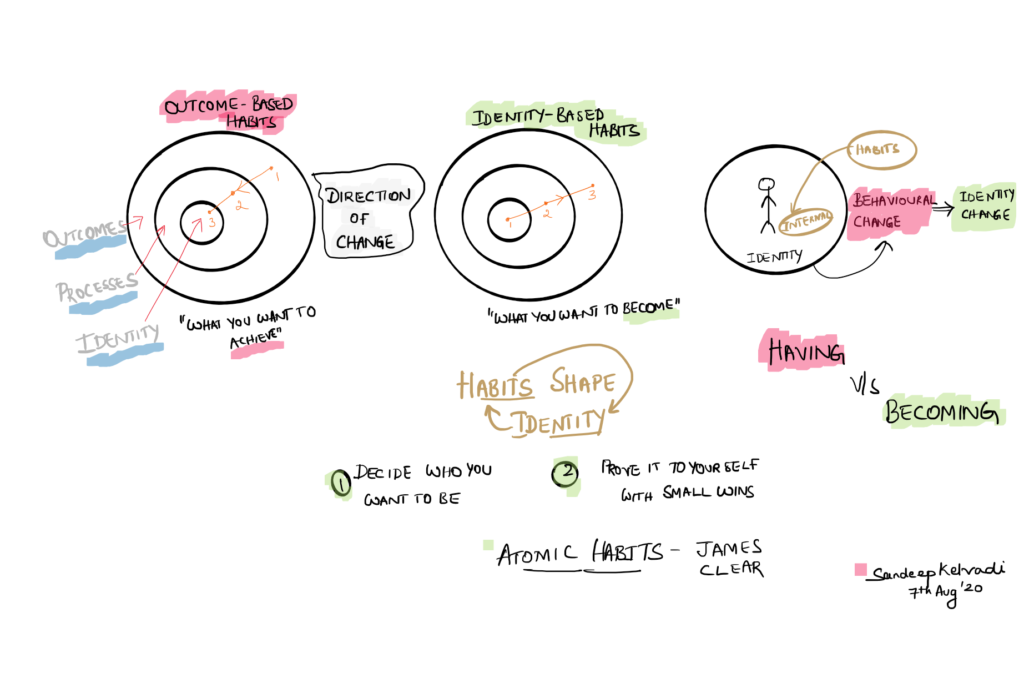 OUTCOME-BASED
HABITS
1
2
3
OUTCOMES
PROCESSES
IDENTITY
"WHAT YOU WANT TO
ACHIEVE"
DIRECTION
OF
CHANGE
IDENTITY-BASED
HABITS
1
2
3
"WHAT YOU WANT TO BECOME"
HABITS
INTERNAL
IDENTITY
BEHAVIOURAL
CHANGE
IDENTITY
CHANGE
HAVING
V/S
BECOMING
HABITS SHAPE
IDENTITY
1 DECIDE WHO YOU
WANT TO BE
2 PROVE IT TO YOURSELF
WITH SMALL WINS
ATOMIC HABITS - JAMES
CLEAR
Sandeep Kelvadi
7th Aug '20